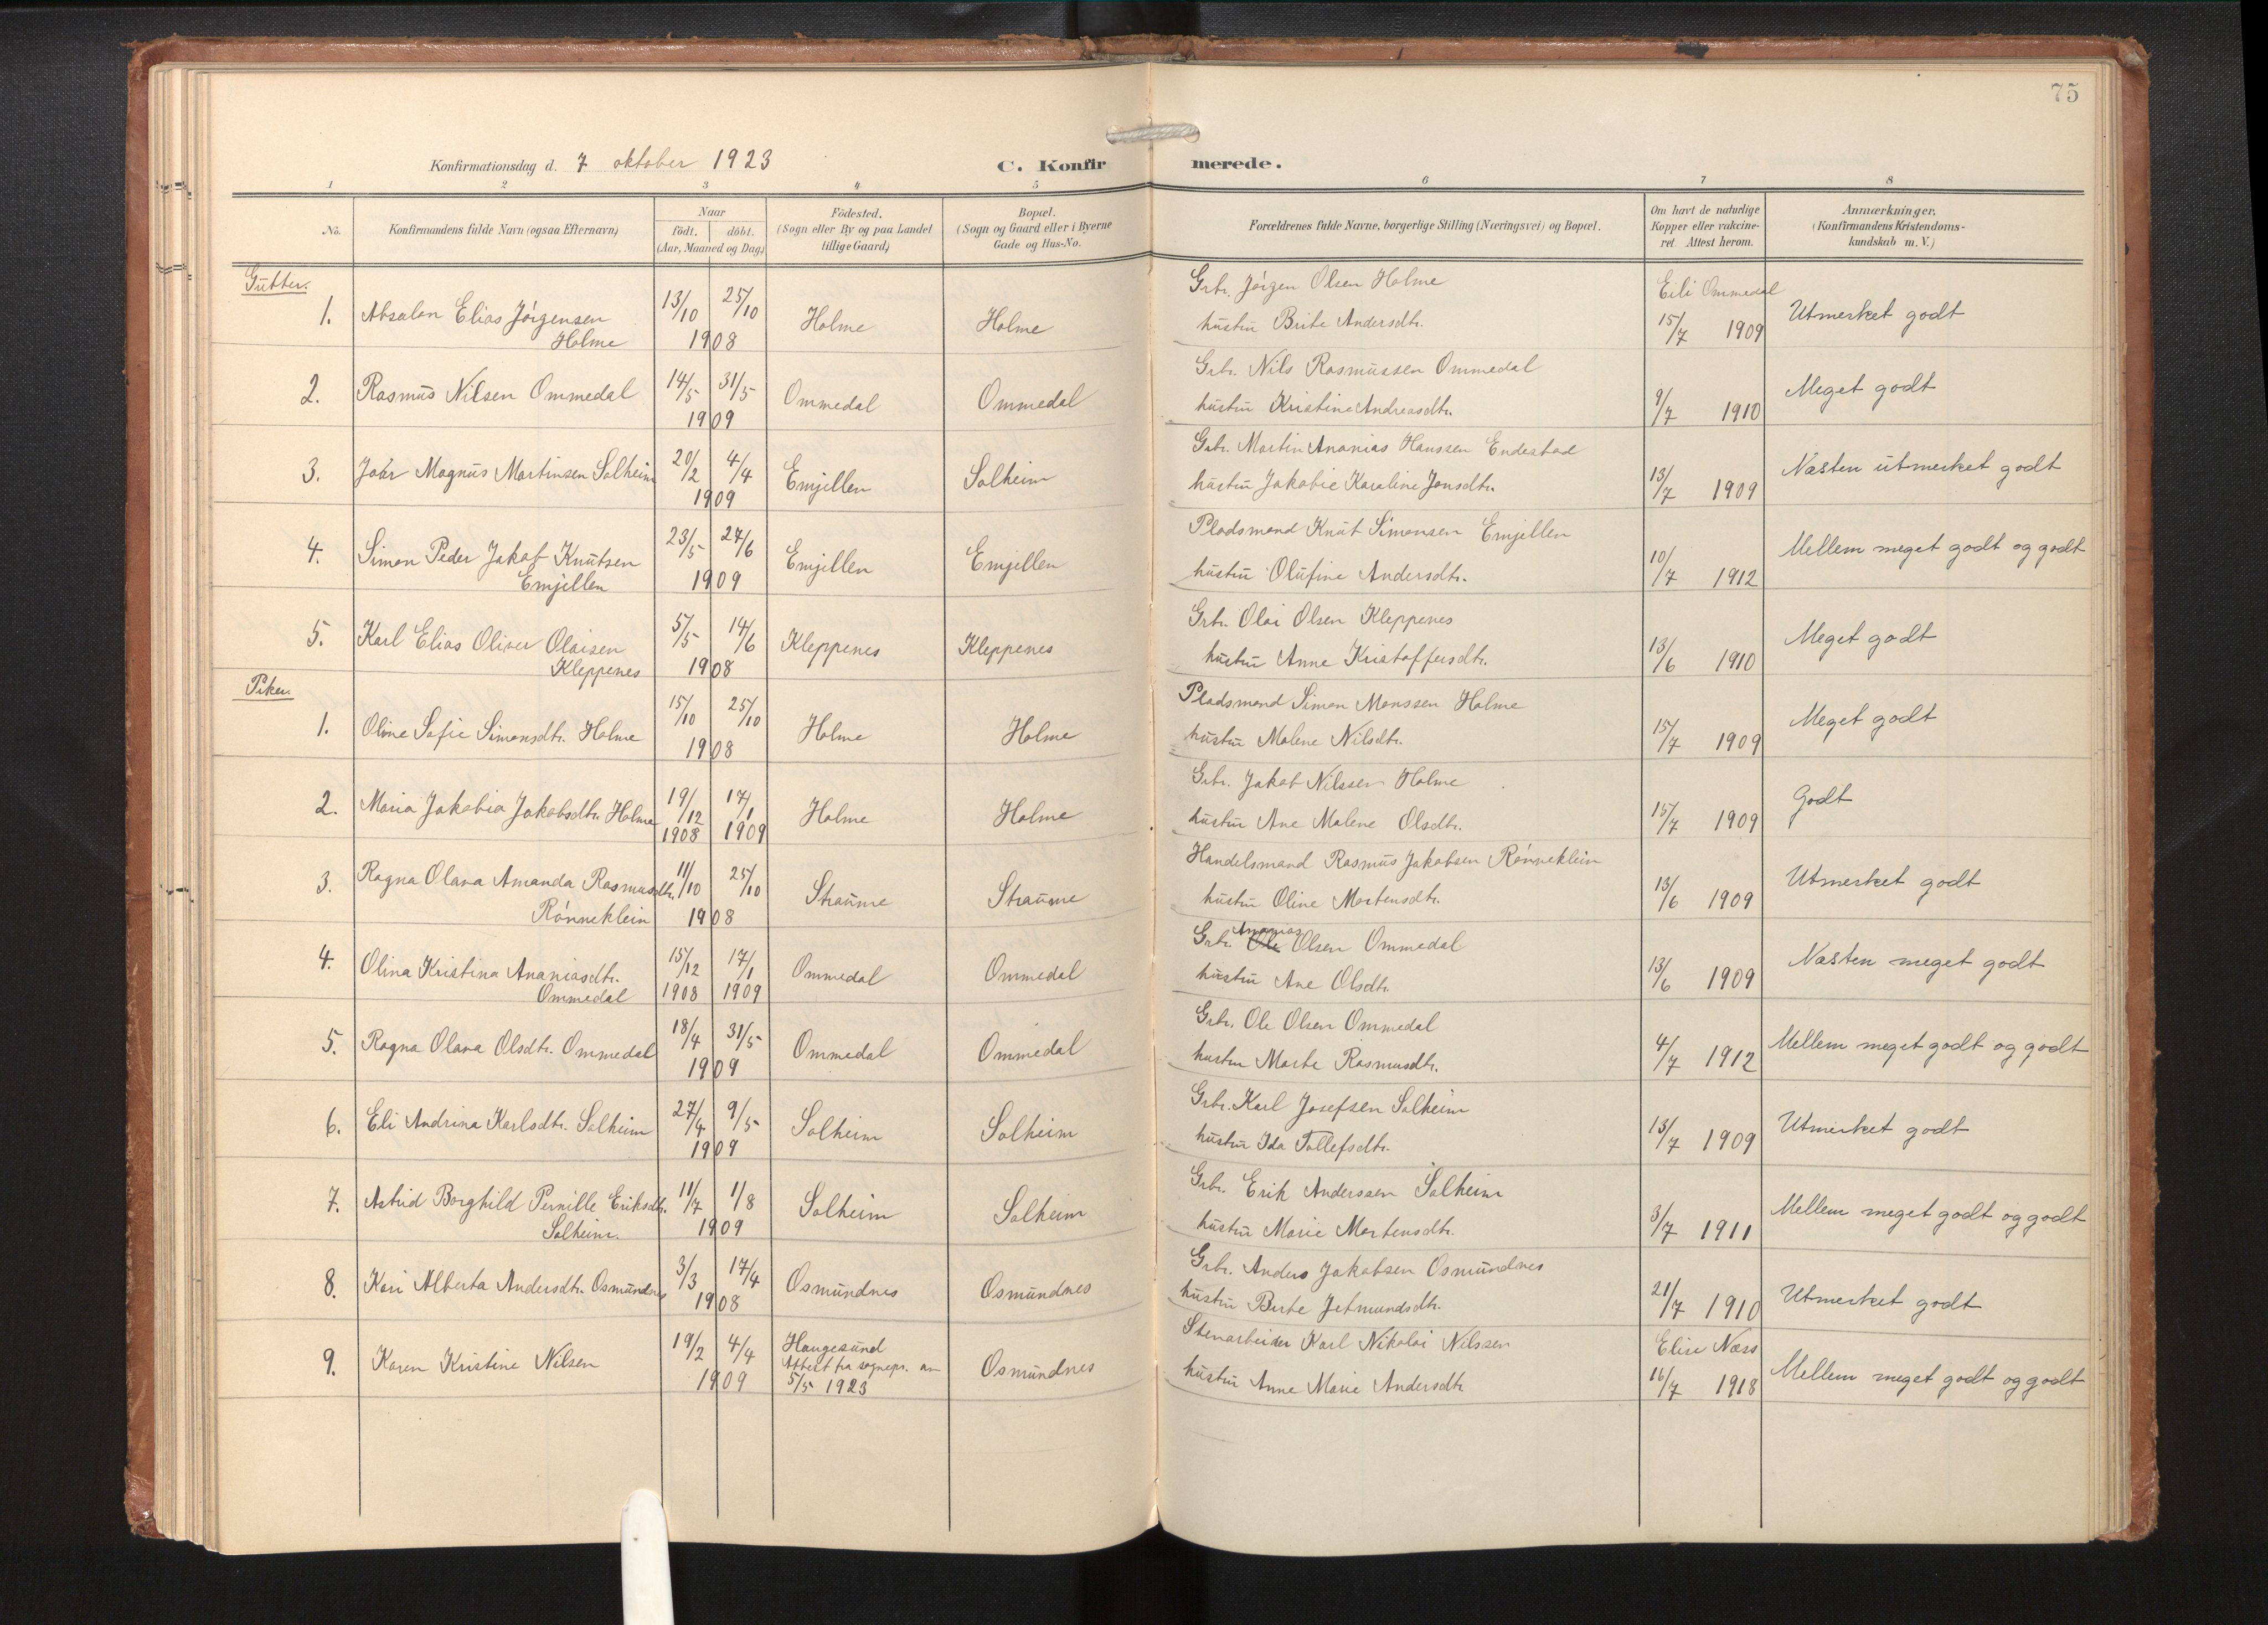 75
Konfirmationsdag d. 7 oktober 1923
C. Konfirmerede.
1 2 3 4 5 6 7 8
No. Konfirmandens fulde Navn (ogsaa Efternavn) Naar födt. döbt. (Aar, Maaned og Dag) Födested. (Sogn eller By og paa Landet tillige Gaard) Bopæl. (Sogn og Gaard eller i Byerne Gade og Hus-No. Forældrenes fulde Navne, borgerlige Stilling (Næringsvei) og Bopæl. Om havt de naturlige Kopper eller vakcineret. Attest herom. Anmærkninger. (Konfirmandens Kristendomskundskab m. V.)
Gutter.
1. Absalon Elias Jørgensen Holme 13/10 25/10 1908 Holme Holme Grbr. Jørgen Olsen Holme hustru Brite Andersdtr. Eili Ommedal 15/7 1909 Utmerket godt
2. Rasmus Nilsen Ommedal 14/5 31/5 1909 Ommedal Ommedal Grbr. Nils Rasmussen Ommedal hustru Kristine Andreasdtr. 9/7 1910 Meget godt
3. Joar Magnus Martinsen Solheim 20/2 4/4 1909 Emjellen Solheim Grbr. Martin Ananias Hanssen Endestad hustru Jakobie Karoline Jonsdtr. 13/7 1909 Næsten utmerket godt
4. Simon Peder Jakob Knutsen Emjellen 23/5 27/6 1909 Emjellen Emjellen Pladsmand Knut Simonsen Emjellen hustru Olufine Andersdtr. 10/7 1912 Mellem meget godt og godt
5. Karl Elias Oliver Olaisen Kleppenes 5/5 14/6 1908 Kleppenes Kleppenes Grbr. Olai Olsen Kleppenes hustru Anne Kristoffersdtr. 13/6 1910 Meget godt
Piker.
1. Oline Sofie Simonsdtr. Holme 15/10 25/10 1908 Holme Holme Pladsmand Simon Monssen Holme hustru Malene Nilsdtr. 15/7 1909 Meget godt
2. Maria Jakobia Jakobsdtr. Holme 19/12 1908 17/1 1909 Holme Holme Grbr. Jakob Nilssen Holme hustru Ane Malene Olsdtr. 15/7 1909 Godt
3. Ragna Olava Amanda Rasmusdtr. Rønneklein 11/10 25/10 1908 Straume Straume Handelsmand Rasmus Jakobsen Rønneklein hustru Oline Mortensdtr. 13/6 1909 Utmerket godt
4. Olina Kristina Ananiasdtr. Ommedal 15/12 1908 17/1 1909 Ommedal Ommedal Grbr. Ole Ananias Olsen Ommedal hustru Ane Olsdtr. 13/6 1909 Næsten meget godt
5. Ragna Olava Olsdtr. Ommedal 18/4 31/5 1909 Ommedal Ommedal Grbr. Ole Olsen Ommedal hustru Marte Rasmusdtr. 4/7 1912 Mellem meget godt og godt
6. Eli Andrina Karlsdtr. Solheim 27/4 9/5 1909 Solheim Solheim Grbr. Karl Josefsen Solheim hustru Ida Tollefsdtr. 13/7 1909 Utmerket godt
7. Astrid Borghild Pernille Eriksdtr. Solheim. 11/7 1/8 1909 Solheim Solheim Grbr. Erik Anderssen Solheim hustru Marie Mortensdtr. 3/7 1911 Mellem meget godt og godt
8. Kari Alberta Andersdtr. Osmundnes 3/3 17/4 1908 Osmundnes Osmundnes Grbr. Anders Jakobsen Osmundnes hustru Berte Jetmundsdtr. 21/7 1910 Utmerket godt
9. Karen Kristine Nilsen 19/2 4/4 1909 Haugesund Attest fra sognepr. av 5/5 1923 Osmundnes Stenarbeider Karl Nikolai Nilssen hustru Anne Marie Andersdtr. Elise Næss 16/7 1918 Mellem meget godt og godt